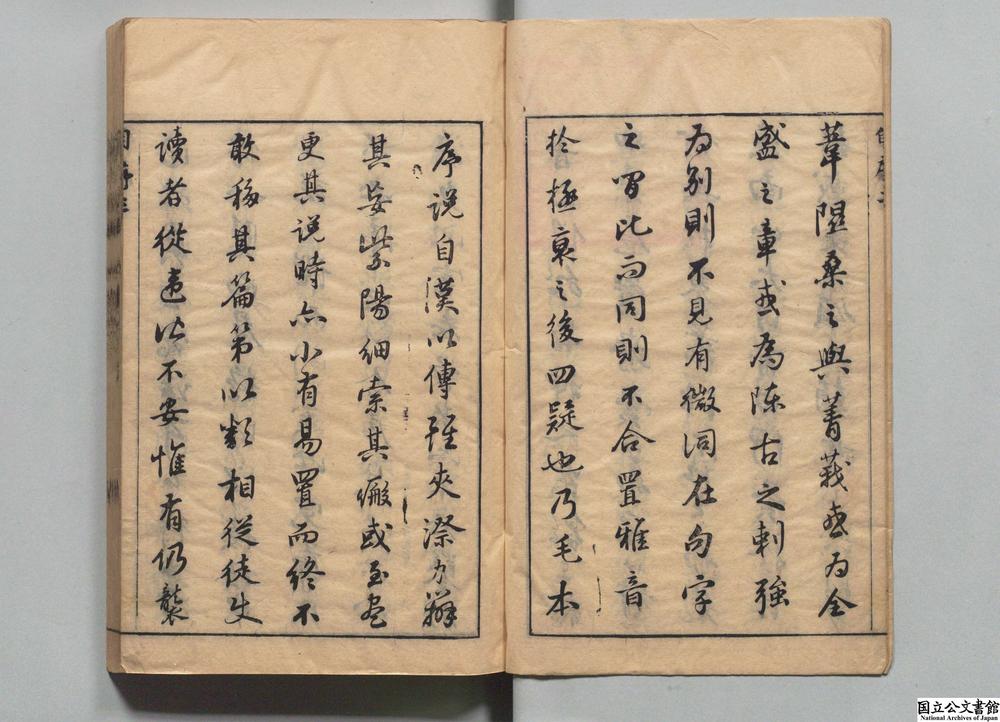 葦隰桑之與菁莪或为全
盛之章或為陳古之刺強
为别則不見有微词在句字
之間比而同則不合置雅音
扵極衰之後四疑也乃毛本
序说自漢以傳雖夾漈力辯
其妄紫陽细索其癥或至盡
更其说時亦小有易置而终不
敢移其篇第以類相從徒使
讀者從違比不安惟有仍襲
国立公文書館
National Archives of Japan